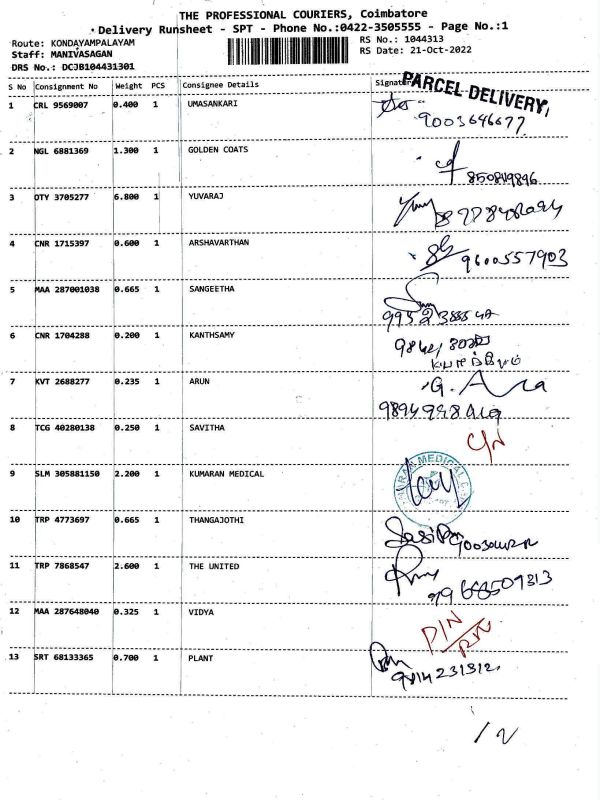 THE PROFESSIONAL COURIERS, Coimbatore
Delivery Runsheet - SPT - Phone No.:0422-3505555 - Page No.:1
Route: KONDAYAMPALAYAM
RS No.: 1044313
Staff: MANIVASAGAN
RS Date: 21-Oct-2022
DRS No.: DCJB104431301
S No Consignment No Weight PCS Consignee Details Signature
PARCEL DELIVERY,
1 CRL 9569007 0.400 1 UMASANKARI
9003646677
2 NGL 6881369 1.300 1 GOLDEN COATS
3 OTY 3705277 6.800 1 YUVARAJ
4 CNR 1715397 0.600 1 ARSHAVARTHAN
9600557903
5 MAA 287001038 0.665 1 SANGEETHA
6 CNR 1704288 0.200 1 KANTHSAMY
7 KVT 2688277 0.235 1 ARUN
G.
8 TCG 40280138 0.250 1 SAVITHA
C/N
9 SLM 305881150 2.200 1 KUMARAN MEDICAL
MEDICAL
10 TRP 4773697 0.665 1 THANGAJOTHI
11 TRP 7868547 2.600 1 THE UNITED
12 MAA 287648040 0.325 1 VIDYA
D/N
13 SRT 68133365 0.700 1 PLANT